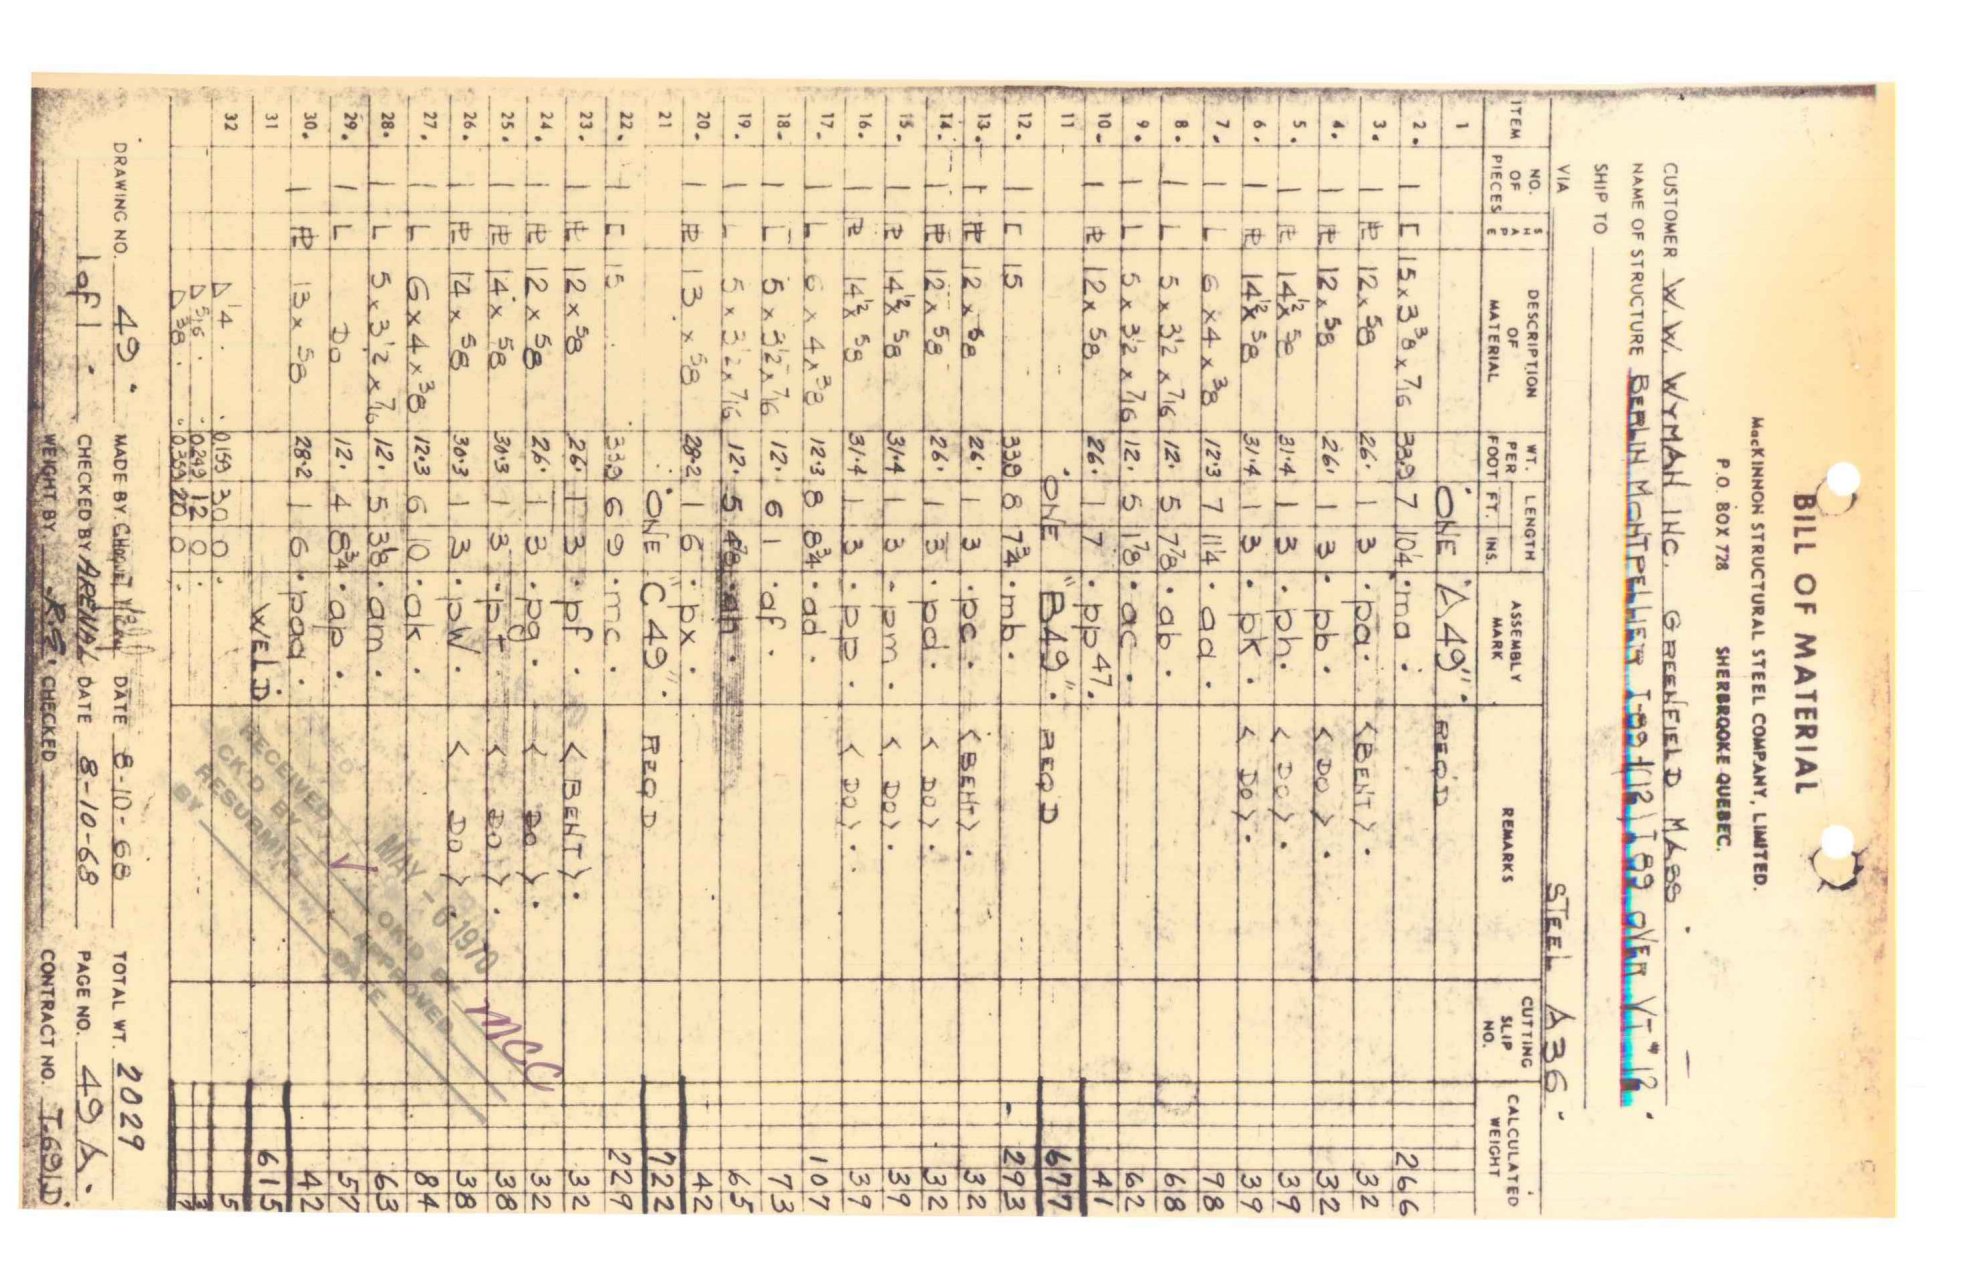 BILL OF MATERIAL
MacKINNON STRUCTURAL STEEL COMPANY, LIMITED.
P.O. BOX 728 SHERBROOKE QUEBEC.
CUSTOMER W.W. WYMAN INC. GREENFIELD MASS
NAME OF STRUCTURE BERLIN MONTPELLIER I-89-1(12) I 89 OVER VT-#12.
SHIP TO
VIA STEEL A36.
ITEM NO. OF PIECES SHAPE DESCRIPTION OF MATERIAL WT. PER FOOT LENGTH FT. INS. ASSEMBLY MARK REMARKS CUTTING SLIP NO. CALCULATED WEIGHT
1 ONE "A49". REQ'D
2. 1 [ 15 x 3 3/8 x 7/16 33.9 7 10 1/4 . ma . 266
3. 1 PL 12 x 5/8 26. 1 3 . pa . <BENT>. 32
4. 1 PL 12 x 5/8 26. 1 3 . pb . <DO>. 32
5. 1 PL 14 1/2 x 5/8 31.4 1 3 . ph . <DO>. 39
6. 1 PL 14 1/2 x 5/8 31.4 1 3 . pk . <DO>. 39
7. 1 L 6 x 4 x 3/8 12.3 7 11 1/4 . aa . 98
8. 1 L 5 x 3 1/2 x 7/16 12. 5 7 7/8 . ab . 68
9. 1 L 5 x 3 1/2 x 7/16 12. 5 1 7/8 . ac . 62
10. 1 PL 12 x 5/8 26. 1 7 . pp47. 41
11 ONE "B49". REQD 677
12. 1 [ 15 33.9 8 7 3/4 . mb . 293
13. 1 PL 12 x 5/8 26. 1 3 . pc . <BENT>. 32
14. 1 PL 12 x 5/8 26. 1 3 . pd . <DO>. 32
15. 1 PL 14 1/2 x 5/8 31.4 1 3 . pm . <DO>. 39
16. 1 PL 14 1/2 x 5/8 31.4 1 3 . pp . <DO>. 39
17. 1 L 6 x 4 x 3/8 12.3 8 8 3/4 . ad . 107
18. 1 L 5 x 3 1/2 x 7/16 12. 6 1 . af . 73
19. 1 L 5 x 3 1/2 x 7/16 12. 5 . ah . 65
20. 1 PL 13 x 5/8 28.2 1 6 . px . 42
21 ONE "C49". REQD 722
22. 1 [ 15 33.9 6 9 . mc . 229
23. 1 PL 12 x 5/8 26. 1 3 . pf . <BENT>. 32
24. 1 PL 12 x 5/8 26. 1 3 . pg . <DO>. 32
25. 1 PL 14 x 5/8 30.3 1 3 . pt . <DO>. 38
26. 1 PL 14 x 5/8 30.3 1 3 . pw . <DO>. 38
27. 1 L 6 x 4 x 3/8 12.3 6 10 . ak . 84
28. 1 L 5 x 3 1/2 x 7/16 12. 5 3 1/8 . am . 63
29. 1 L DO 12. 4 8 3/4 . ap . 57
30. 1 PL 13 x 5/8 28.2 1 6 . paa . 42
31 WELD. 615
32 △ 1/4 . 0.159 30 0 . 5
△ 5/16 . 0.249 12 0 . 3
△ 3/8 . 0.359 20 0 . 7
RECEIVED MAY - 6 1970
CK'D BY OK'D BY MCC
RESUBMIT APPROVED
BY DATE
DRAWING NO. 49. MADE BY DATE 8-10-68 TOTAL WT. 2029
1 of 1. CHECKED BY ARENAL DATE 8-10-68 PAGE NO. 49 A.
WEIGHT BY R.R. CHECKED CONTRACT NO. T-691D